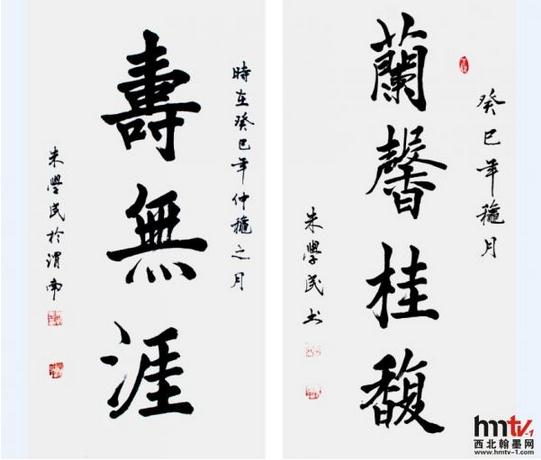 時在癸巳年仲穐之月
壽無涯
朱學民於渭南
癸巳年穐月
蘭馨桂馥
朱學民书
hmtv-1
西北翰墨网
www.hmtv-1.com